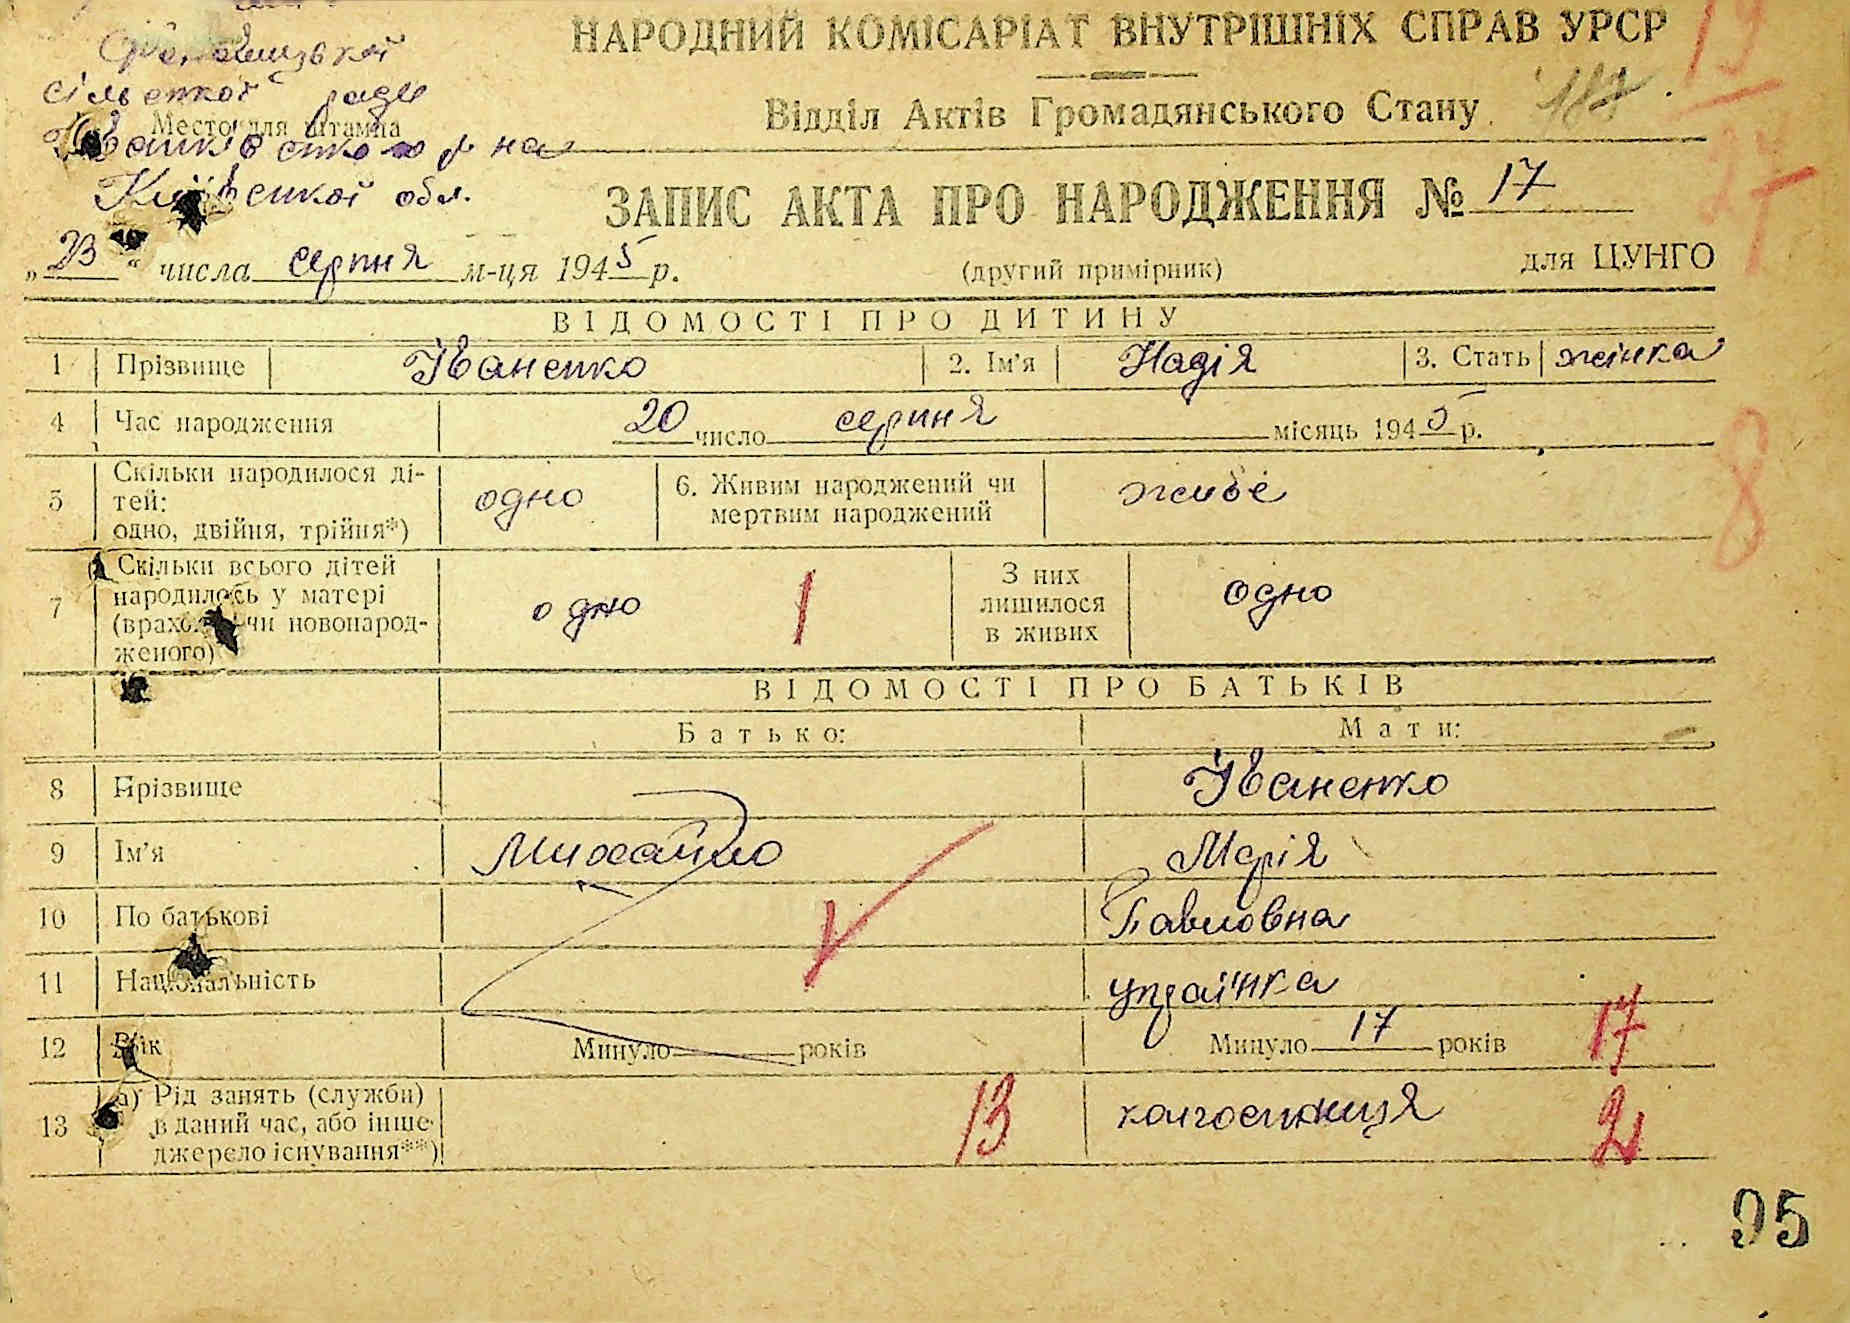 НАРОДНИЙ КОМІСАРІАТ ВНУТРІШНІХ СПРАВ УРСР
19
сільської ради
Відділ Актів Громадянського Стану
187
Место для штампа
р-на
27
Київської обл.
ЗАПИС АКТА ПРО НАРОДЖЕННЯ № 17
„23“ числа серпня м-ця 1945 р.
(другий примірник)
для ЦУНГО
ВІДОМОСТІ ПРО ДИТИНУ
1 Прізвище Іваненко 2. Ім'я Надія 3. Стать жінка
4 Час народження 20 число серпня місяць 1945 р.
5 Скільки народилося ді-
тей:
одно, двійня, трійня*) одно 6. Живим народжений чи
мертвим народжений живе
8
7 Скільки всього дітей
народилось у матері
(врахо чи новонарод-
женого) одно 1 З них
лишилося
в живих одно
ВІДОМОСТІ ПРО БАТЬКІВ
Батько: Мати:
8 Прізвище Іваненко
9 Ім'я Михайло Марія
10 По батькові Павловна
11 Національність українка
12 Вік Минуло років Минуло 17 років 17
13 а) Рід занять (служби)
в даний час, або інше
джерело існування**) 13 колгоспниця 2
95